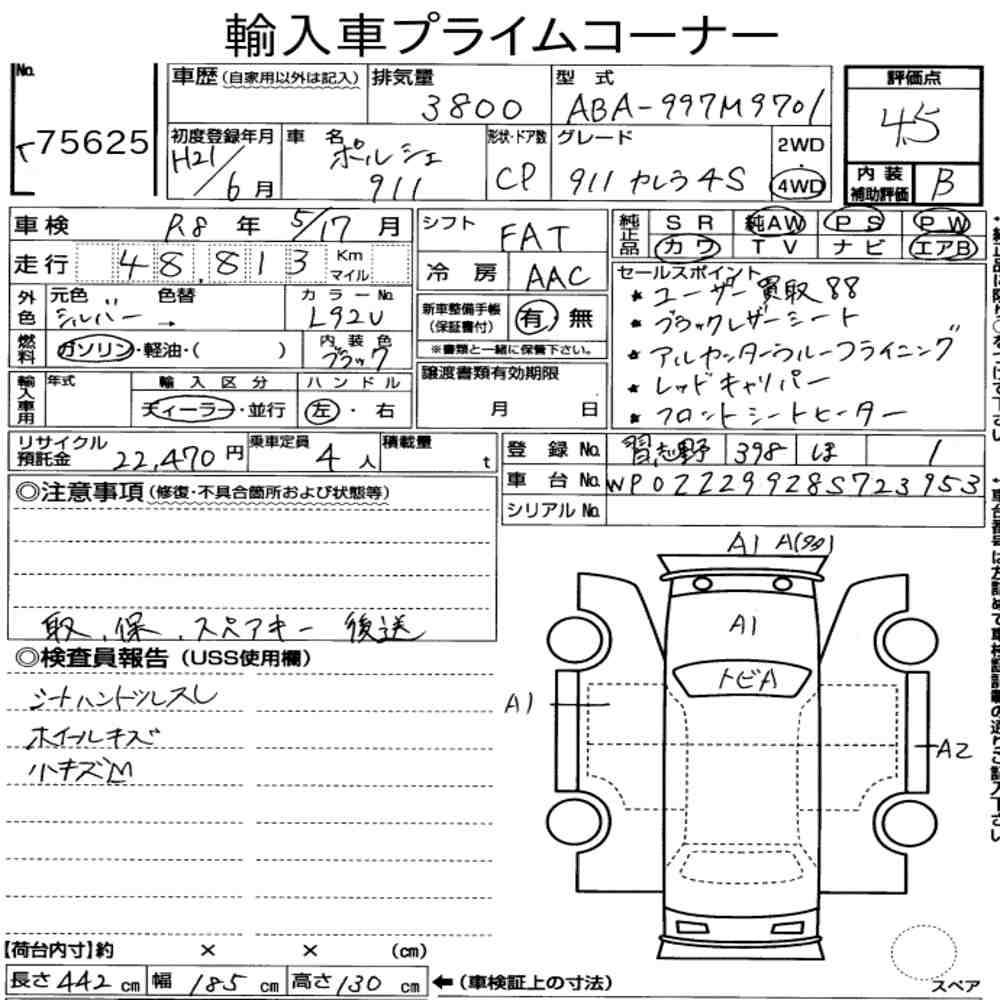 輸入車プライムコーナー
No. 75625
車歴(自家用以外は記入)
排気量 3800
型式 ABA-997M9701
評価点 4.5
初度登録年月 H21/6月
車名 ポルシェ 911
形状・ドア数 CP
グレード 911 カレラ4S
2WD
4WD
内装補助評価 B
車検 R.8年 5/17月
シフト FAT
純正品 SR 純AW PS PW
カワ TV ナビ エアB
走行 48,813 Km マイル
冷房 AAC
セールスポイント
★ユーザー買取88
★ブラックレザーシート
★アルカンターラルーフライニング
★レッドキャリパー
★フロントシートヒーター
外色 元色 〃 色替 シルバー →
カラーNo. L92U
新車整備手帳(保証書付) 有・無
※書類と一緒に保管下さい。
燃料 ガソリン・軽油・( )
内装色 ブラック
輸入車用 年式 輸入区分 ディーラー・並行
ハンドル 左・右
譲渡書類有効期限 月 日
リサイクル預託金 22,470円
乗車定員 4人
積載量 t
登録No. 習志野 398 ほ 1
車台No. WP0ZZZ99Z8S723953
シリアルNo.
◎注意事項(修復・不具合箇所および状態等)
取、保、スペアキー 後送
◎検査員報告(USS使用欄)
シートハンドルスレ
ホイールキズ
小キズM
A1 A(タタ)
A1
トビA
A1
A2
【荷台内寸】約 × × (cm)
長さ442cm 幅185cm 高さ130cm ←(車検証上の寸法)
スペア